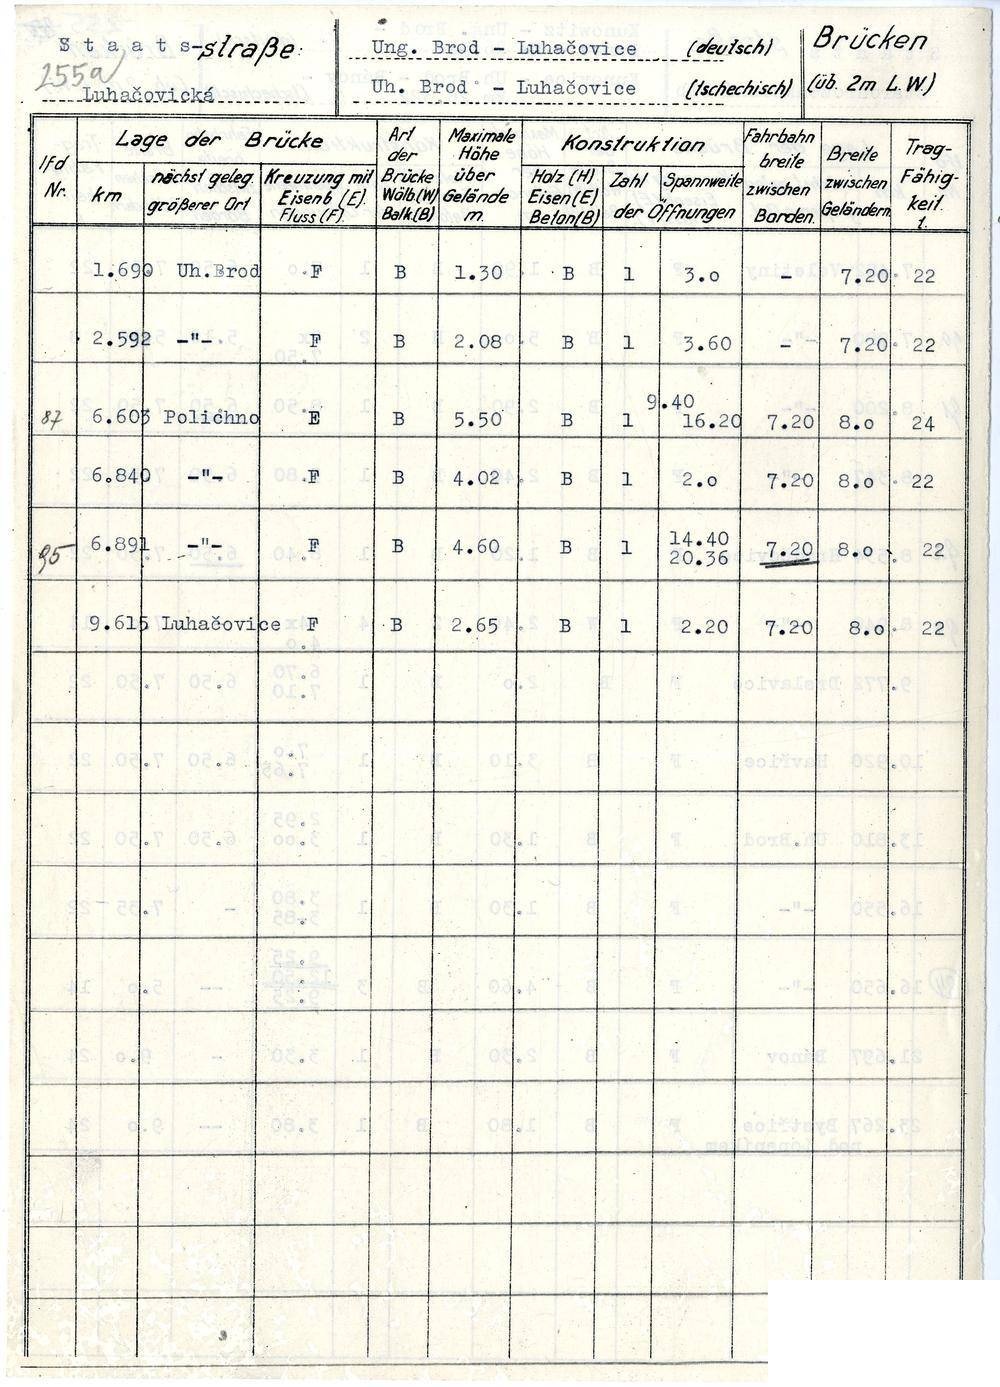 S t a a t s-straße:
255a
Luhačovická
Ung. Brod - Luhačovice (deutsch)
Uh. Brod - Luhačovice (tschechisch)
Brücken
(üb. 2m L.W.)
lfd Nr.
Lage der Brücke
km
nächst geleg. größerer Ort
Kreuzung mit Eisenb.(E). Fluss(F).
Art der Brücke Wölb(W) Balk(B)
Maximale Höhe über Gelände m.
Konstruktion
Holz(H) Eisen(E) Beton(B)
Zahl Spannweite
der Öffnungen
Fahrbahn breite zwischen Borden.
Breite zwischen Geländern.
Trag-Fähig-keit. t.
1.690 Uh.Brod F B 1.30 B 1 3.o - 7.20 22
2.592 -"- F B 2.08 B 1 3.60 - 7.20 22
9.40
87 6.603 Polichno E B 5.50 B 1 16.20 7.20 8.o 24
6.840 -"- F B 4.02 B 1 2.o 7.20 8.o 22
14.40
95 6.891 -"- F B 4.60 B 1 20.36 7.20 8.o 22
9.615 Luhačovice F B 2.65 B 1 2.20 7.20 8.o 22